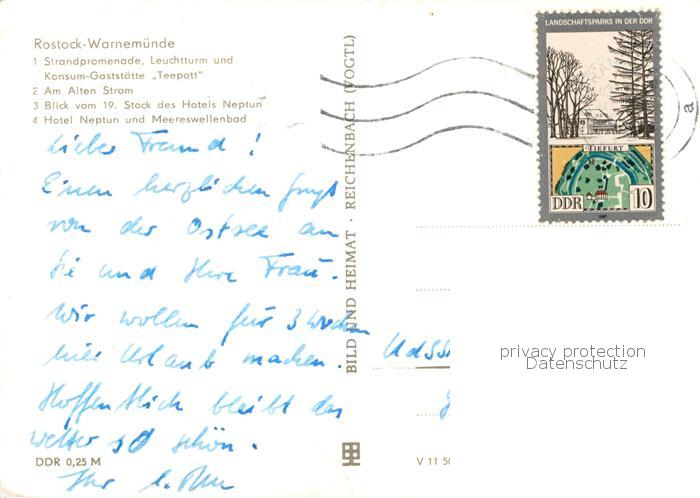 Rostock-Warnemünde
1 Strandpromenade, Leuchtturm und
Konsum-Gaststätte „Teepott"
2 Am Alten Strom
3 Blick vom 19. Stock des Hotels Neptun
4 Hotel Neptun und Meereswellenbad
Lieber Freund!
Einen herzlichen Gruß
von der Ostsee an
Sie und Ihre Frau.
Wir wollen für 3 Wochen
hier Urlaub machen.
Hoffentlich bleibt das
Wetter so schön.
Ihr
DDR 0,25 M
BILD UND HEIMAT · REICHENBACH (VOGTL)
V 11 50
LANDSCHAFTSPARKS IN DER DDR
TIEFURT
DDR 10
1981
a
UdSS
privacy protection
Datenschutz